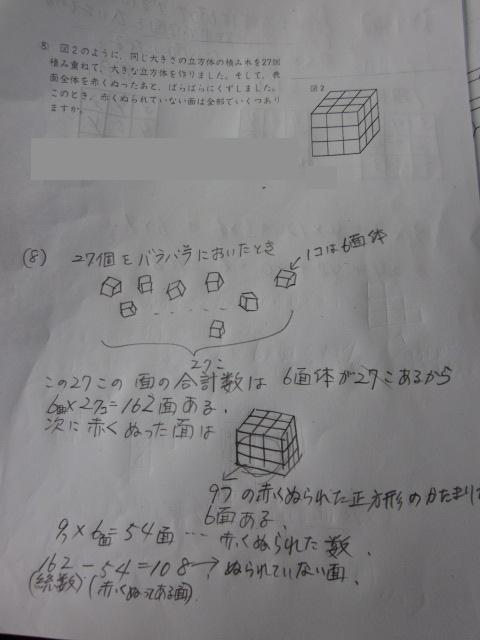 8) 図2のように、同じ大きさの立方体の積み木を27個
積み重ねて、大きな立方体を作りました。そして、表
面全体を赤くぬったあと、ばらばらにくずしました。
このとき、赤くぬられていない面は全部でいくつあり
ますか。
図2
(8) 27個をバラバラにおいたとき
1コは6面体
27こ
この27この面の合計数は 6面体が27こあるから
6面×27こ=162面ある.
次に赤くぬった面は
9つの赤くぬられた正方形のかたまりで
6面ある.
9つ×6面=54面…赤くぬられた数.
162-54=108→ぬられていない面.
(総数) (赤くぬってある面)